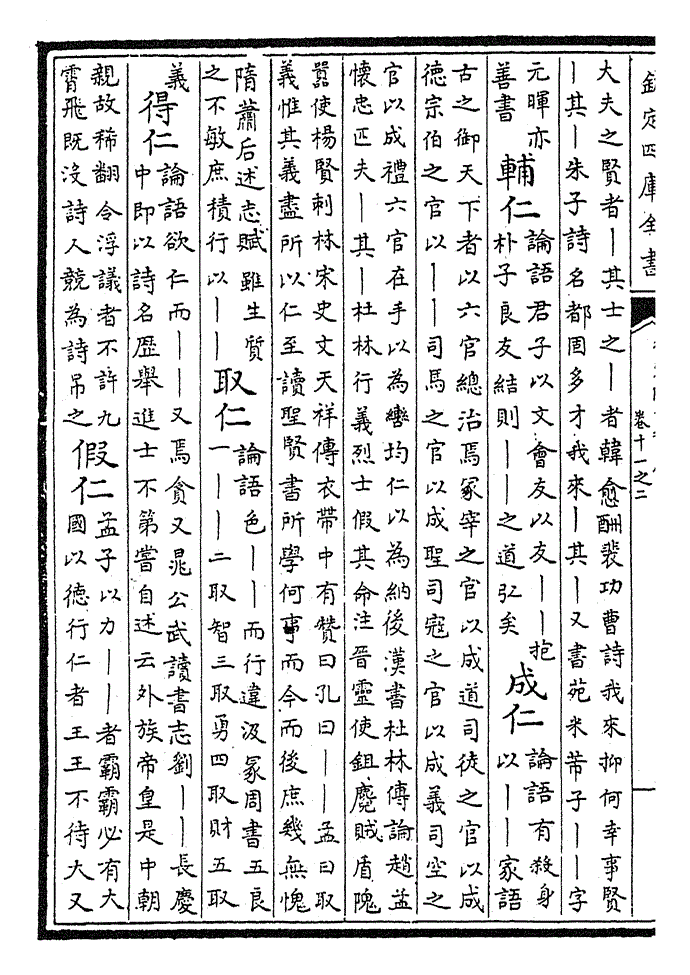 欽定四庫全書
卷十一之二
大夫之賢者丨其士之丨者韓愈酬裴功曹詩我來抑何幸事賢
丨其丨朱子詩名都固多才我來丨其丨又書苑米芾子丨丨字
元暉亦
善書
輔仁
論語君子以文會友以友丨丨抱
朴子良友結則丨丨之道弘矣
成仁
論語有殺身
以丨丨家語
古之御天下者以六官總治焉冢宰之官以成道司徒之官以成
德宗伯之官以丨丨司馬之官以成聖司寇之官以成義司空之
官以成禮六官在手以為轡均仁以為納後漢書杜林傳論趙孟
懷忠匹夫丨其丨杜林行義烈士假其命注晉靈使鉏麑賊盾隗
囂使楊賢刺林宋史文天祥傳衣帶中有贊曰孔曰丨丨孟曰取
義惟其義盡所以仁至讀聖賢書所學何事而今而後庶幾無愧
隋蕭后述志賦雖生質
之不敏庶積行以丨丨
取仁
論語色丨丨而行違汲冢周書五良
一丨丨二取智三取勇四取財五取
義
得仁
論語欲仁而丨丨又焉貪又晁公武讀書志劉丨丨長慶
中即以詩名歴舉進士不第嘗自述云外族帝皇是中朝
親故稀翻令浮議者不許九
霄飛既没詩人競為詩吊之
假仁
孟子以力丨丨者霸霸必有大
國以德行仁者王王不待大又